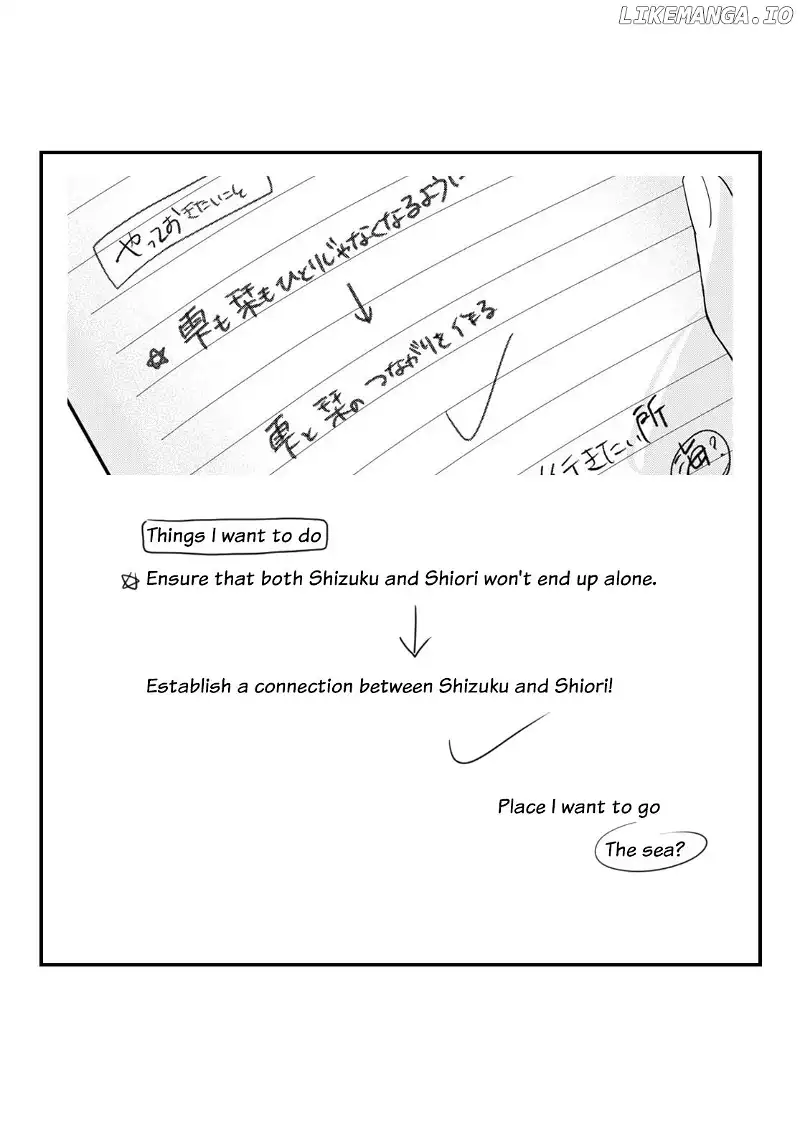 LIKEMANGA.IO
やっておきたいこと
☆ 雫も栞もひとりじゃなくなるように
↓
雫と栞のつながりを作る
行きたい所
海?
Things I want to do
☆ Ensure that both Shizuku and Shiori won't end up alone.
↓
Establish a connection between Shizuku and Shiori!
Place I want to go
The sea?